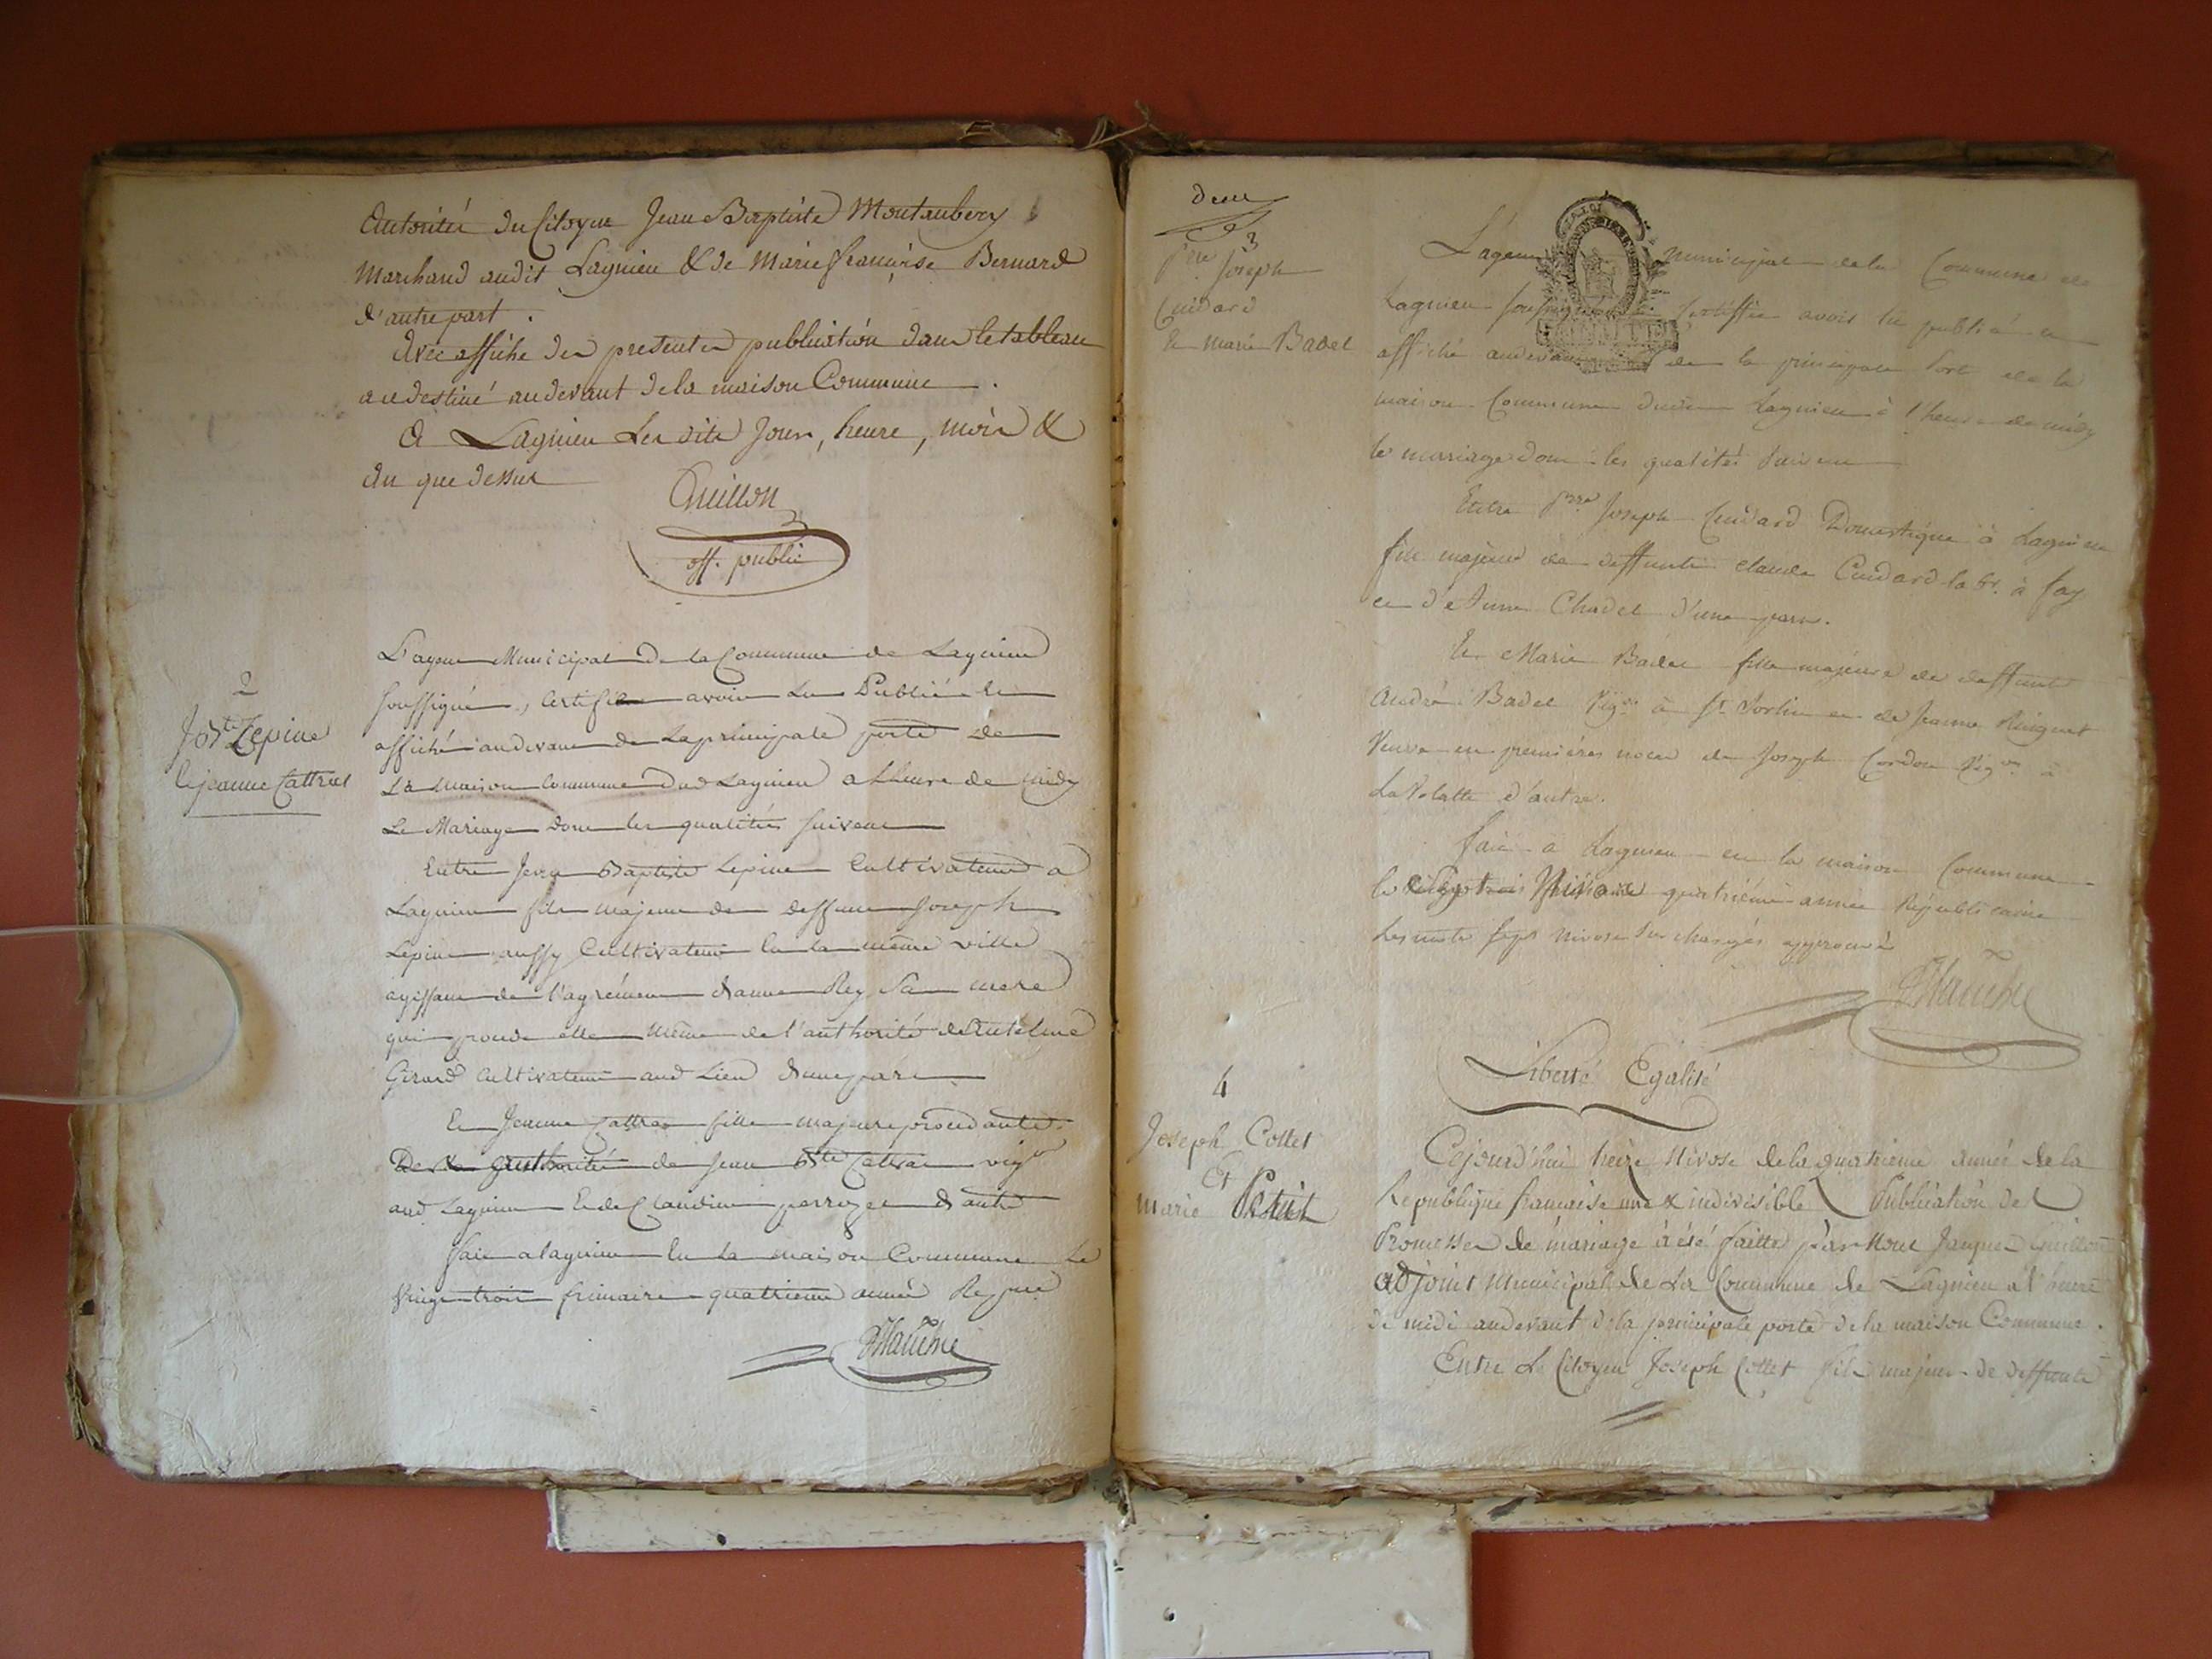 Autorités du Citoyen Jean Baptiste Montaubery
Marchand audit Lagnieu & de Marie françoise Bernard
d'autre part.
Avec affiche des presentes publication dans le tableau
au destiné audevant de la maison Commune.
A Lagnieu Les dits Jour, heure, mois &
An que dessus
Guillon
off. public
2
J. Bte Lepine
& jeanne Cattras
L'agent Municipal De la Commune de Lagnieu
soussigné, certifie avoir Lu Publié et
affiché audevant de La principale porte de
La maison Commune dud Lagnieu a Lheure de midy
Le Mariage dont les qualités suivent
Entre Jean Baptiste Lepine Cultivateur a
Lagnieu fils majeur de deffunt Joseph
Lepine aussy Cultivateur En la même ville
agissant de l'agrément danne Rey Sa mere
qui procede elle même de l'authorité
Girard Cultivateur aud Lieu d'une part
Et Jeanne Cattras fille majeure procedante
De authorité de Jean Bte Cattras vigon
aud Lagnieu Et de Claudine d'autre
Fait a lagnieu En La maison Commune Le
Vingt trois frimaire quatrieme année Repque
deux
3
pre Joseph
Cuidard
& marie Badel
L'agent municipal de la Commune de
Lagnieu soussigné Certiffie avoir lu publié et
affiché audevant de la principale Porte de la
maison Commune dudit Lagnieu à l'heure de midy
le mariage dont les qualités suivent
Entre pre Joseph Cuidard Domestique à Lagnieu
fils majeur de deffunt Claude Cuidard labr. à fay
et d'Anne Chadel d'une part.
Et Marie Badel fille majeure de deffunt
André Badel Vigon à St Sorlin et de Jeanne
Veuve en premières noces de Joseph Cordon Vigon à
La Volatte d'autre.
fait a Lagnieu en la maison Commune
le Nivose quatrième année Républicaine
Les mots sept nivose surchargés approuvé
Liberté Egalité
4
Joseph Collet
Et
marie
Cejourd'hui treize Nivose de la quatrieme année de la
Republique francaise une & indivisible Publication de
Promesses de mariage à été faitte par Nous Jacques Guillon
adjoint Municipal de La Commune de Lagnieu a l'heure
de midi audevant de la principale porte de la maison Commune.
Entre Le Citoyen Joseph Collet fils majeur de deffunt